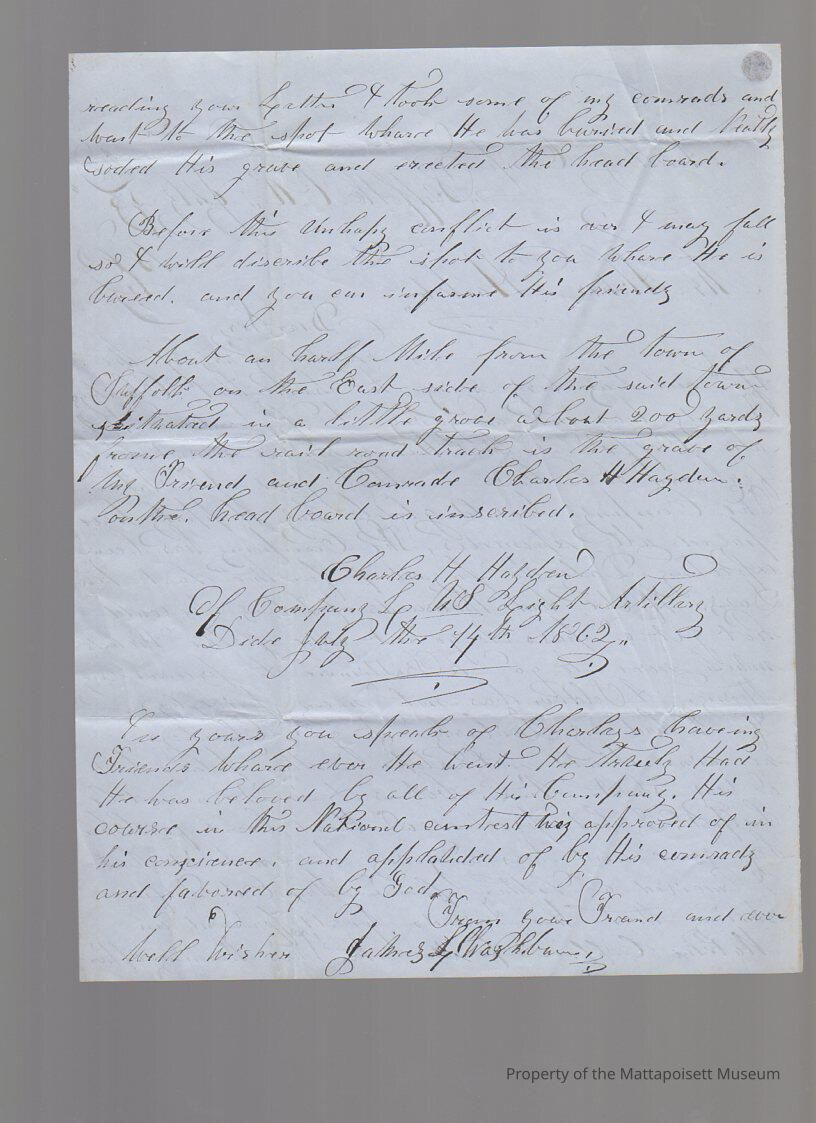 reading your Letter I took some of my comrads and
went to the spot whare He was buried and Neatly
soded His grave and erected the head board.
Before this Unhapy conflict is over I may fall
so I will discribe the spot to you whare He is
buried. and you can informe His friends
About an half Mile from the town of
Suffolk on the East side of the said town
situated in a little grove about 200 yards
frome the rail road track is the grave of
My Friend and Comrade Charles H Hayden.
on the. head board is inscribed.
Charles H Hayden
Of Company L US Light Artillary
Dide July the 14th 1862
In yours you speak of Charleys haveing
Friends whare ever He went He truely Had
He was beloved by all of His Cumpany. His
course in this National contrest was approved of in
his concience. and applauded of by His comrads
and favored of by God
From your Friend and ever
Well Wisher James L Washburn
Property of the Mattapoisett Museum